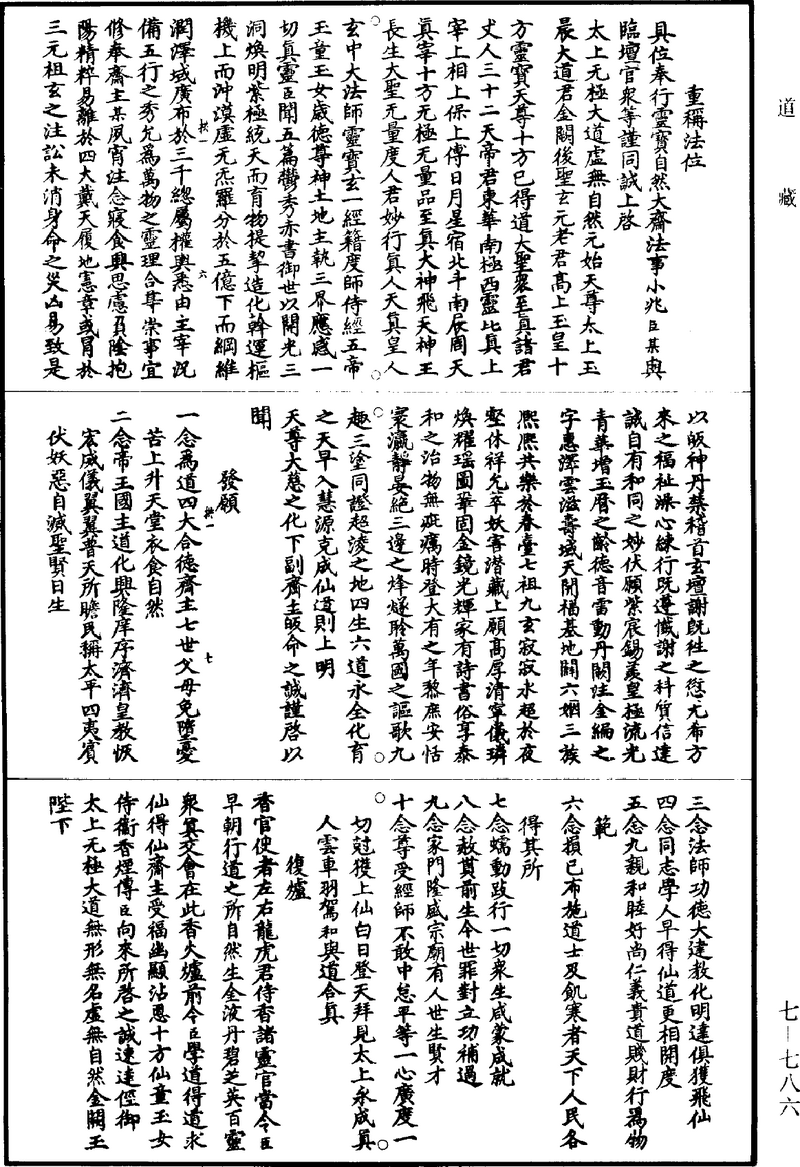 道藏
重稱法位
具位奉行靈寶自然大齋法事小兆臣某與
臨壇官眾等謹同誠上啓
太上无極大道虛無自然元始天尊太上玉
晨大道君金闕後聖玄元老君高上玉皇十
方靈寶天尊十方已得道大聖衆至真諸君
丈人三十二天帝君東華南極西靈北真上
宰上相上保上傅日月星宿北斗南辰周天
真宰十方无極无量品至真大神飛天神王
長生大聖无量度人君妙行真人天真皇人
玄中大法師靈寶玄一經籍度師侍經五帝
玉童玉女威德尊神土地主執三界應感一
切真靈臣聞五篇鬱秀赤書御世以開光三
洞煥明紫極統天而育物提挈造化幹運樞
機上而沖漠虛无炁羅分於五億下而綱維
潤澤域廣布於三千總屬權輿悉由主宰況
備五行之秀允爲萬物之靈理合葺崇事宜
修奉齋主某夙宵注念寢食興思慮負陰抱
陽精粹易離於四大戴天履地憲章或冒於
三元祖玄之注訟未消身命之災凶易致是
以皈神丹禁稽首玄壇謝旣往之愆尤希方
來之福祉澡心練行旣遵懺謝之科質信達
誠自有和同之妙伏願紫宸錫羨皇極流光
青華增玉曆之齡德音雷動丹闕注金編之
字惠澤雲滋壽域天開福基地闢六姻三族
熙熙共樂於春臺七祖九玄寂寂永超於夜
壑休祥允萃妖害潛藏上願高厚清寧儀璘
煥耀瑶圖鞏固金鏡光輝家有詩書俗享泰
和之治物無疵癘時登大有之年黎庶安恬
寰瀛靜晏絕三邊之烽燧聆萬國之謳歌九
趣三塗同證超淩之地四生六道永全化育
之天早入慧源克成仙道則上明
天尊大慈之化下副齋主皈命之誠謹啓以
聞
發願
一念爲道四大合德齋主七世父母免墮憂
苦上升天堂衣食自然
二念帝王國主道化興隆庠序濟濟皇教恢
宏威儀翼翼普天所瞻民稱太平四夷賓
伏妖惡自滅聖賢日生
三念法師功德大建教化明達俱獲飛仙
四念同志學人早得仙道更相開度
五念九親和睦好尚仁義貴道賤財行爲物
範
六念損已布施道士及飢寒者天下人民各
得其所
七念蠕動跂行一切衆生咸蒙成就
八念赦貰前生今世罪對立功補過
九念家門隆盛宗廟有人世生賢才
十念尊受經師不敢中怠平等一心廣度一
切尅獲上仙白日登天拜見太上永成真
人雲車羽駕和與道合真
復爐
香官使者左右龍虎君侍香諸靈官當令臣
早朝行道之所自然生金液丹碧芝英百靈
衆真交會在此香火爐前令臣學道得道求
仙得仙齋主受福幽顯沾恩十方仙童玉女
侍衛香煙傳臣向來所啓之誠速達徑御
太上无極大道無形無名虛無自然金闕玉
陛下
拱一
六
拱一
七
七—七八六